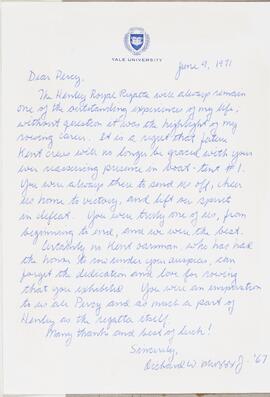 YALE UNIVERSITY
June 9, 1971
Dear Percy,
The Henley Royal Regatta will always remain
one of the outstanding experiences of my life,
without question it was the highlight of my
rowing career. It is a regret that future
Kent crews will no longer be graced with your
ever reassuring presence in boat-tent #1.
You were always there to send us off, cheer
us home to victory, and lift our spirit
in defeat. You were truly one of us, from
beginning to end, and we were the best.
Certainly no Kent oarsman, who has had
the honor to row under your auspices, can
forget the dedication and love for rowing
that you exhibited. You were an inspiration
to us all Percy and as much a part of
Henley as the regatta itself.
Many thanks and best of luck!
Sincerely,
Richard W. Jr. '67